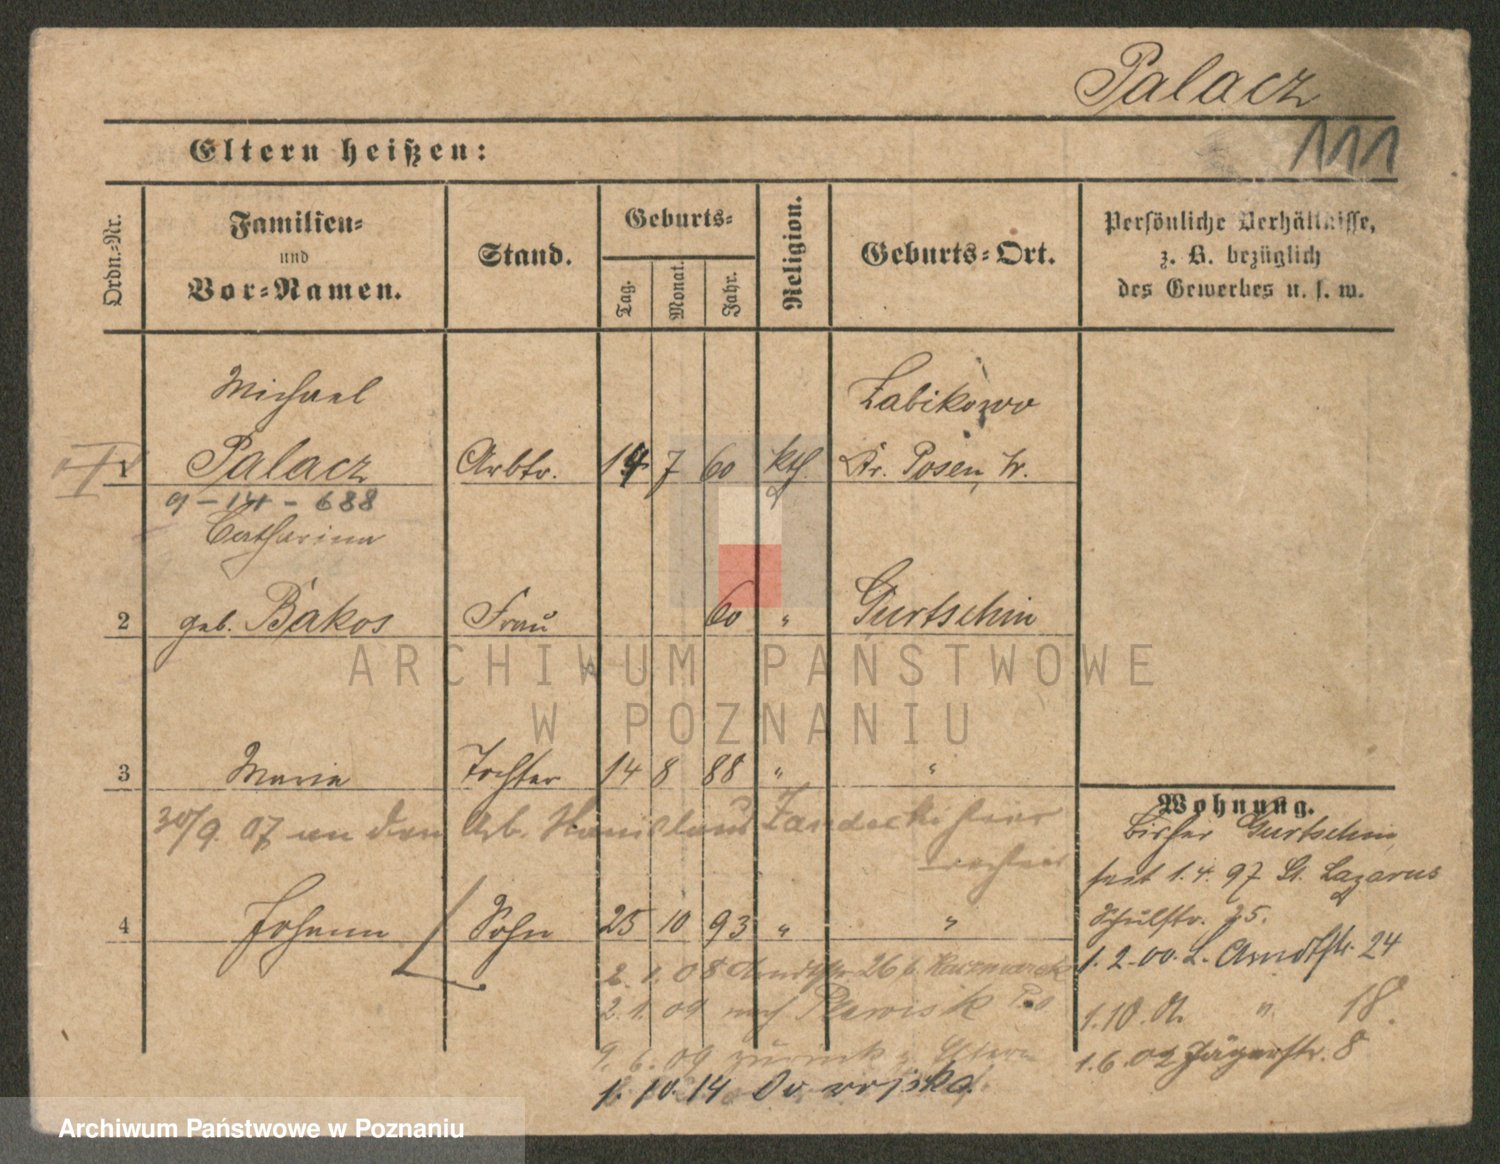 Palacz
111
Eltern heißen:
Ordn.-Nr.
Familien-
und
Vor-Namen.
Stand.
Geburts-
Tag.
Monat.
Jahr.
Religion.
Geburts-Ort.
Persönliche Verhältnisse,
z. B. bezüglich
des Gewerbes u. s. w.
Michael Zabikowo
1 Palacz Arbtr. 14 7 60 kth. Kr. Posen W.
9 - 14 - 688
Catharina
2 geb. Bakos Frau 60 " Gurtschin
ARCHIWUM PAŃSTWOWE
W POZNANIU
3 Maria Tochter 14 8 88 " "
30/9. 07 an den Arb. Stanislaus Zandecki hier
4 Johann Sohn 25 10 93 " "
2. 1. 08 Arndtstr 26 b. Kaczmarek
2. 1. 09 nach Plewisk Po
9. 6. 09 zurück z. Eltern
1. 10. 14
Wohnung.
Bisher Gurtschin
seit 1. 4. 97 St. Lazarus
Schulstr. 75.
1. 2. 00. L. Arndtstr. 24
1. 10. 01 " 18.
1. 6. 02 Jägerstr. 8
Archiwum Państwowe w Poznaniu